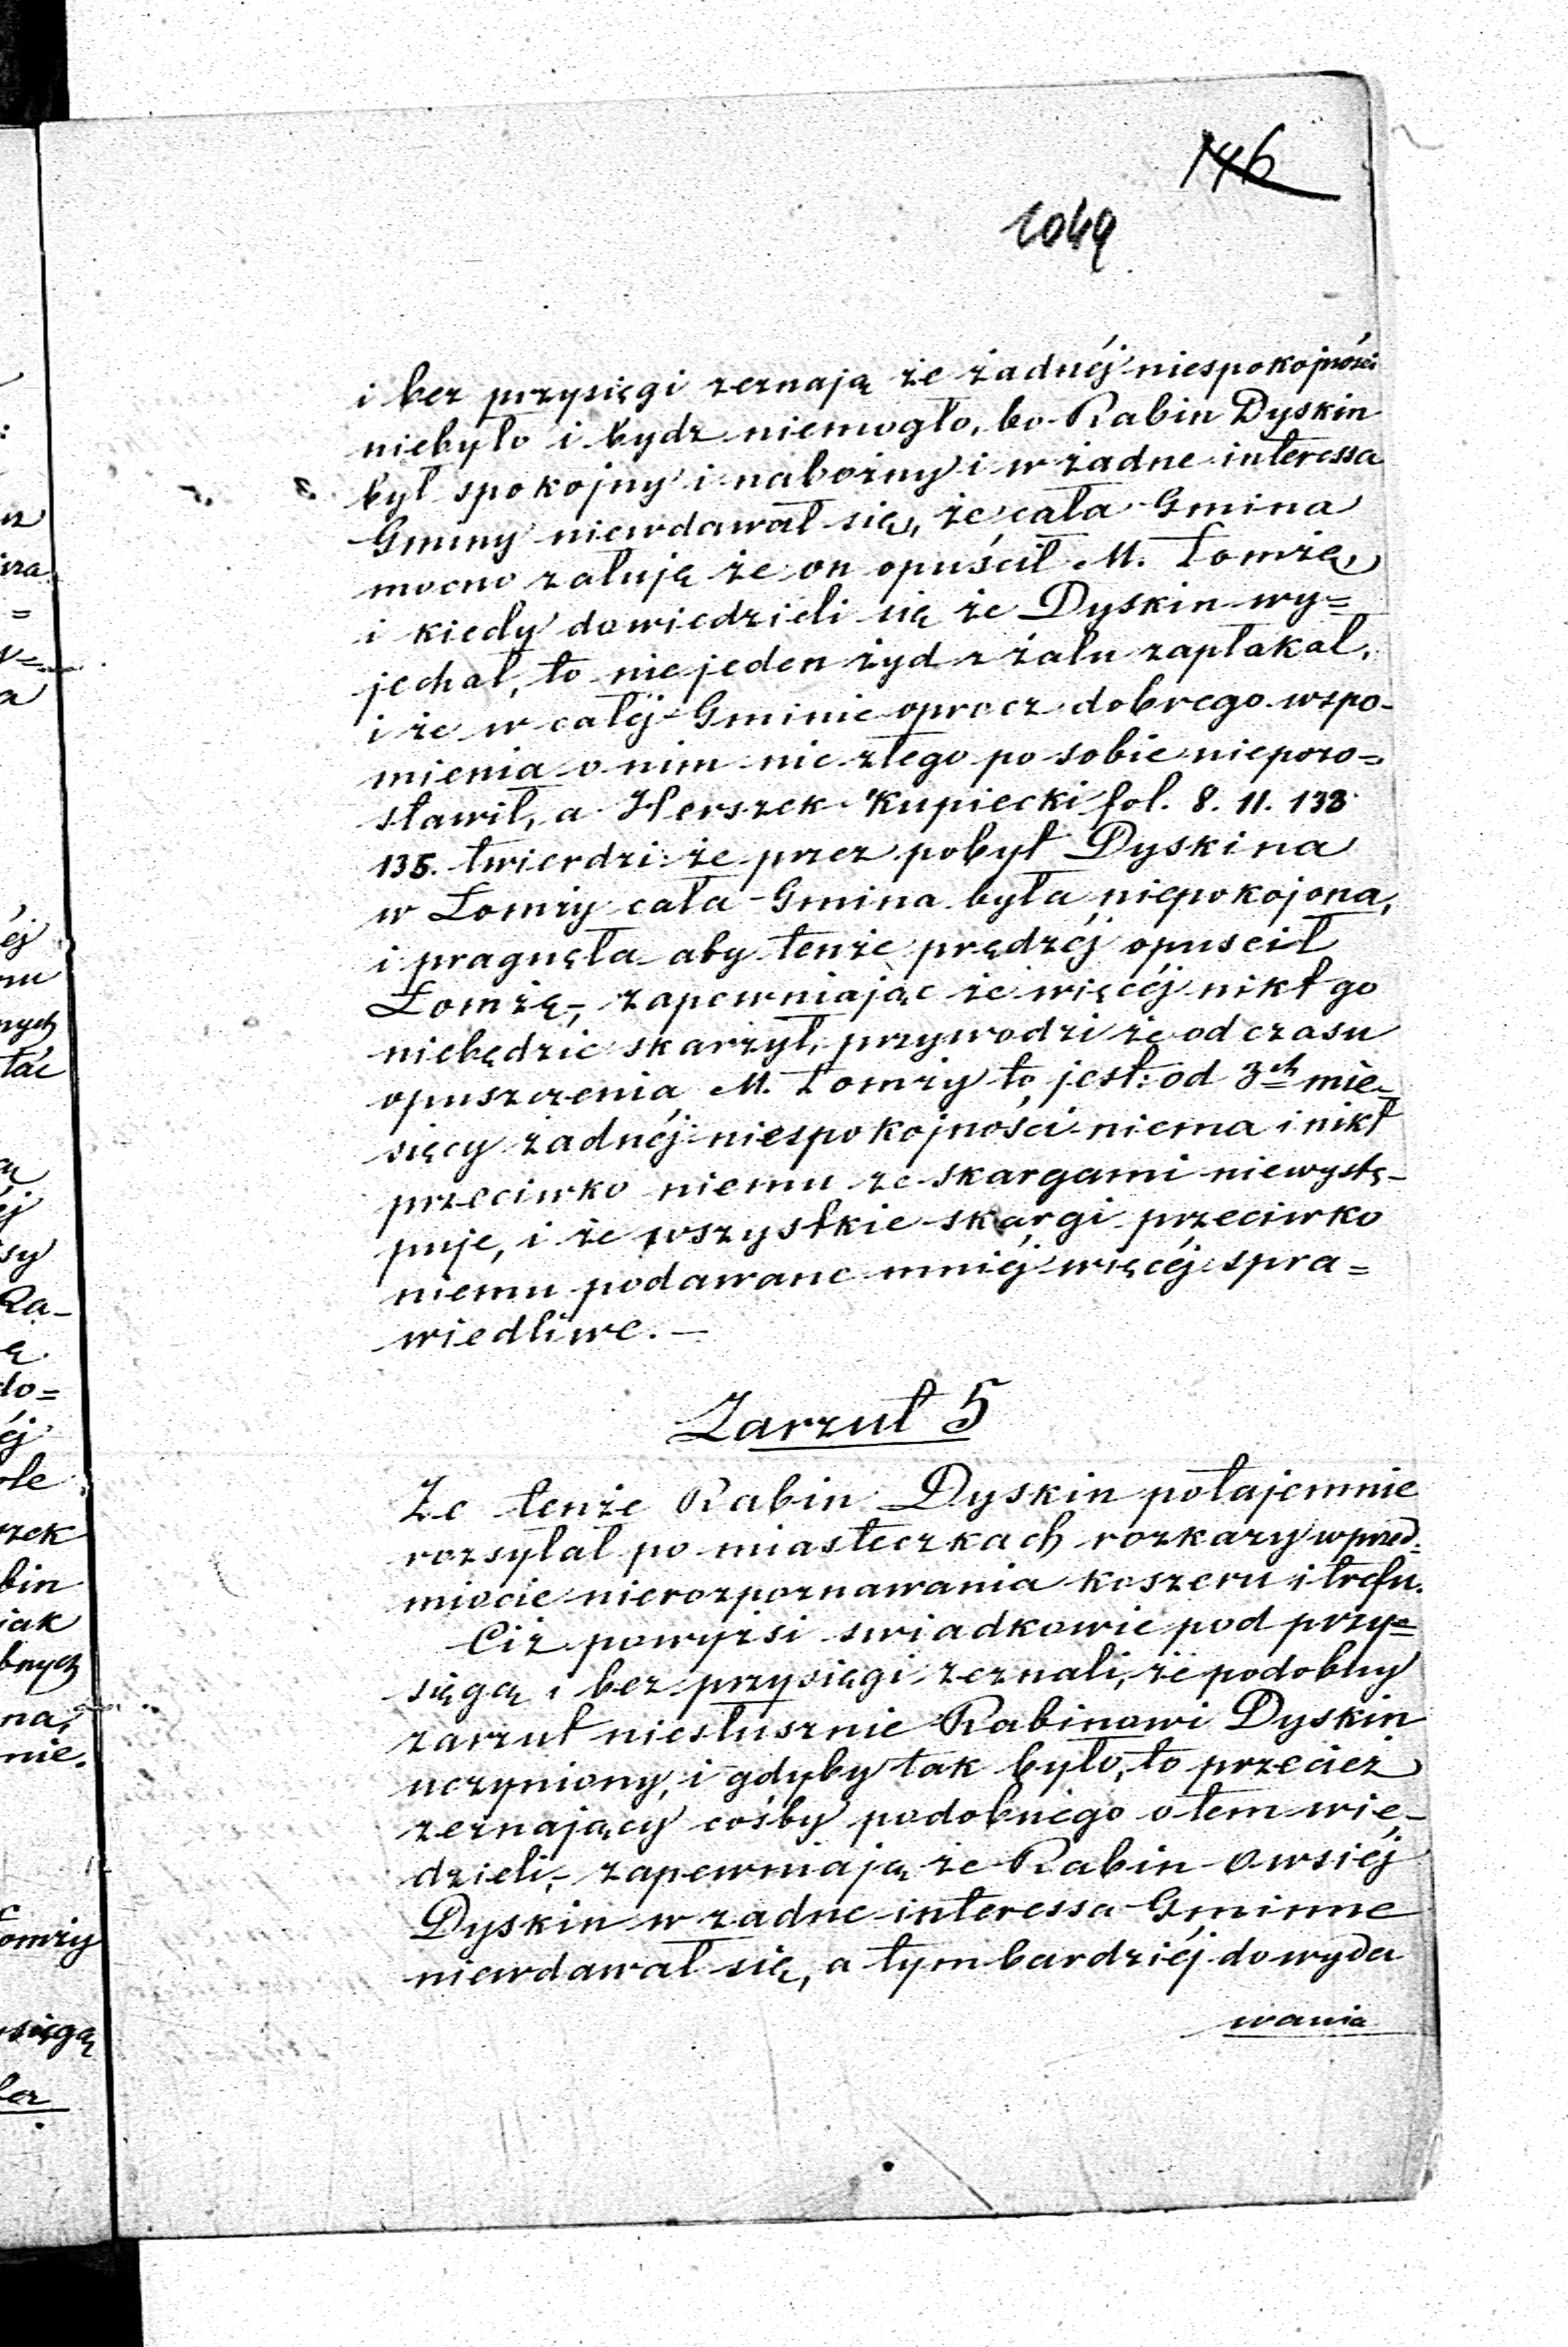 146
1049
i bez przysięgi zeznają że żadnéj niespokojności
niebyło i bydz niemogło, bo Rabin Dyskin
był spokojny i nabożny i w żadne interessa
Gminy niewdawał się, że cała Gmina
mocno załują że on opuścił M. Łomżę,
i kiedy dowiedzieli się że Dyskin wy=
jechał, to nie jeden żyd z żalu zapłakał,
i że w całéj Gminie oprocz dobrego wspo-
mienia o nim nic złego po sobie niepozo=
stawił, a Herszek Kupiecki fol. 8. 11. 133
135. twierdzi że przez pobyt Dyskina
w Łomży cała Gmina była niepokojona,
i pragnęła aby tenże prędzéj opuscił
Łomżę,- zapewniając że więcéj nikt go
niebędzie skarżył, przywodzi że od czasu
opuszczenia M. Łomży to jest: od 3ch mie-
sięcy żadnéj niespokojności niema i nikt
przeciwko niemu ze skargami niewystę-
puje, i że wszystkie skargi przeciwko
niemu podawane mniéj więcéj spra=
wiedliwe. —
Zarzut 5
Że tenże Rabin Dyskin potajemnie
rozsyłał po miasteczkach rozkazy w przed=
miocie nierozpoznawania koszeru i trefu.
Ciż powyżsi swiadkowie pod przy=
sięgą i bez przysięgi zeznali, że podobny
zarzut niesłusznie Rabinowi Dyskin
uczyniony, i gdyby tak było, to przecież
zeznający cośby podobnego o tem wie-
dzieli,- zapewniają że Rabin Owsiéj
Dyskin w zadne interessa Gminne
niewdawał się, a tym bardziéj do wyda
wania